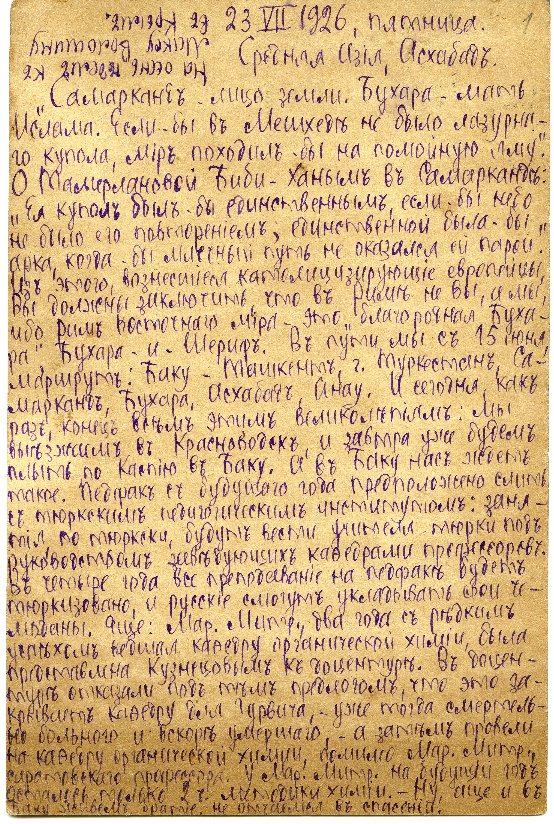 23 VII 1926, пятница.
1
Средняя Азія, Асхабадъ.
„Самаркандъ - лицо земли. Бухара - мать
Ислама. Если-бы въ Мешхедѣ не было лазурна-
го купола, міръ походилъ-бы на помойную яму“.
О Тамерлановой Биби-Ханымъ въ Самаркандѣ:
„Ея куполъ былъ-бы единственнымъ, если-бы небо
не было его повтореніемъ, единственной была-бы
арка, когда-бы млечный путь не оказался ей парой“.
Изъ этого, вознесшіеся католицизирующіе европейцы,
вы должны заключить, что въ Римѣ не вы, а мы,
ибо Римъ восточнаго міра - это „благородная Буха-
ра“ Бухара-и-Шерифъ. Въ пути мы съ 15 іюня,
маршрутъ: Баку - Ташкентъ, г. Туркестанъ, Са-
маркандъ, Бухара, Асхабадъ, Анау. И сегодня, какъ
разъ, конецъ всѣмъ этимъ великолѣпіямъ: мы
выѣзжаемъ въ Красноводскъ, и завтра уже будемъ
плыть по Каспію въ Баку. А въ Баку насъ ждетъ
такое. Педфакъ съ будущаго года предположено слить
съ тюркскимъ педагогическимъ институтомъ: заня-
тія по тюркски, будутъ вести учителя тюрки подъ
руководствомъ завѣдующихъ кафедрами профессоровъ.
Въ четыре года все преподаваніе на педфакѣ будетъ
тюркизовано, и русскіе смогутъ укладывать свои че-
моданы. Еще: Мар. Митр., два года съ рѣдкимъ
успѣхомъ ведшая кафедру органической химіи, была
представлена Кузнецовымъ къ доцентурѣ. Въ доцен-
турѣ отказали подъ тѣмъ предлогомъ, что это за-
крываетъ кафедру для Гурвича, - уже тогда смертель-
но больного и вскорѣ умершаго, - а затѣмъ провели
на кафедру органической химіи, помимо Мар. Митр.,
саратовскаго профессора. У Мар. Митр. на будущій годъ
осталось только 2 ч. методики химіи. - Ну, еще и въ
Баку живемъ, братіе, не отчаемся въ спасеніи.